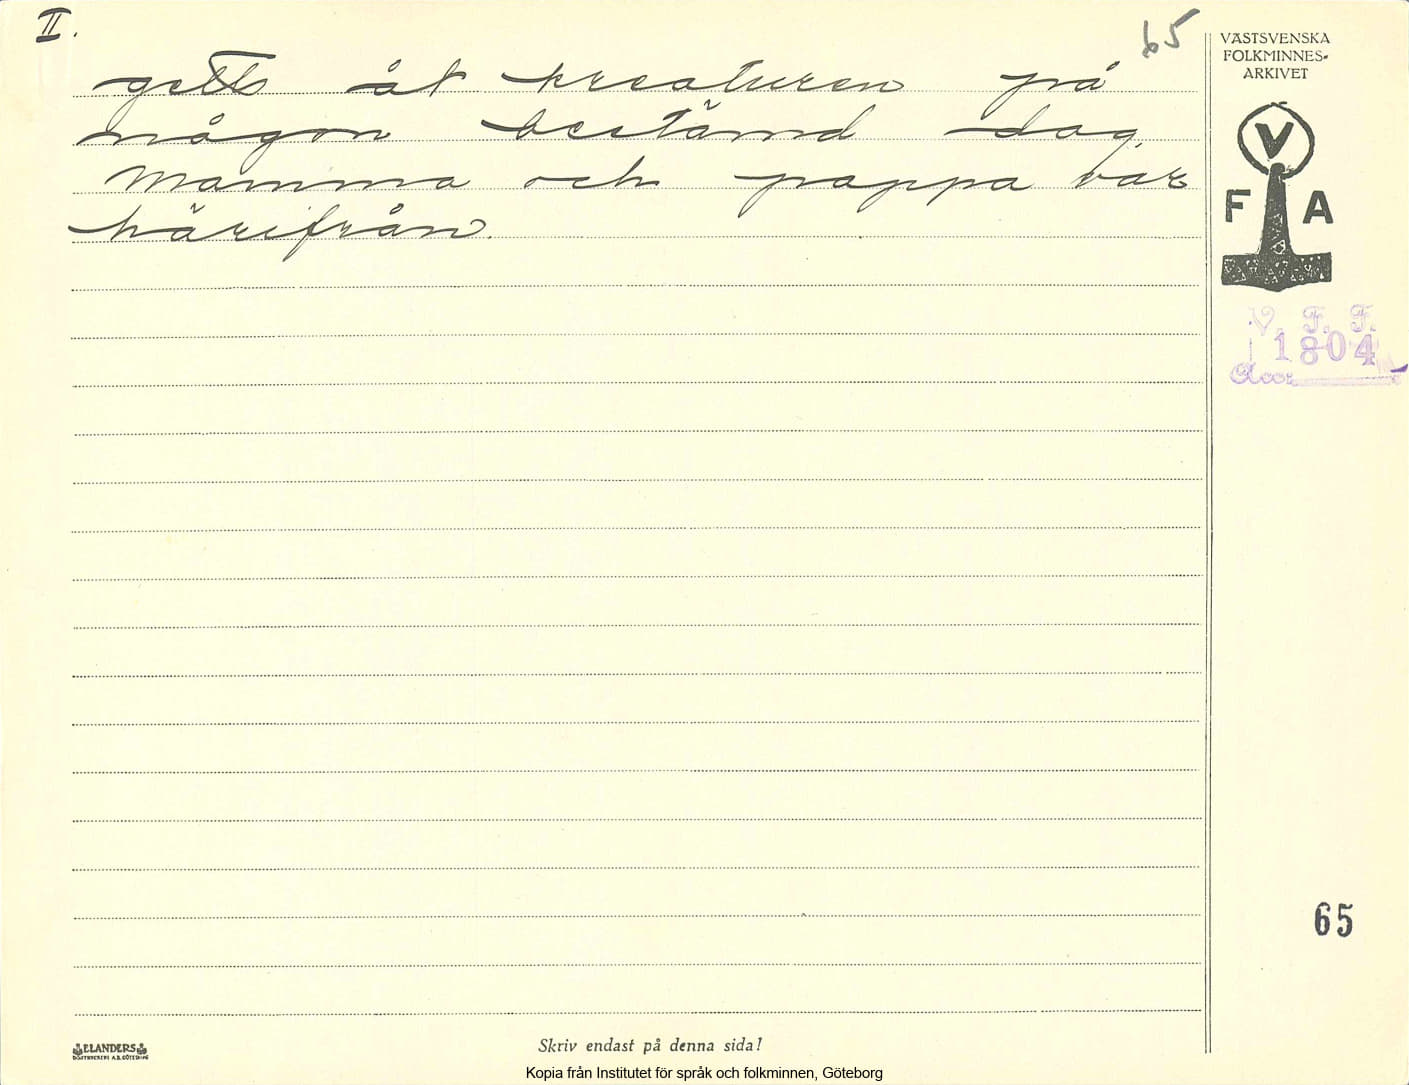 II.
65
getts åt kreaturen på
någon bestämd dag.
Mamma och pappa var
härifrån.
VÄSTSVENSKA
FOLKMINNES-
ARKIVET
V
F A
V. F. F.
1804
Acc:
65
ELANDERS
BOKTRYCKERI A.B. GÖTEBORG
Skriv endast på denna sida!
Kopia från Institutet för språk och folkminnen, Göteborg